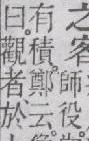 之客
師役
有積鄭云
曰觀者於